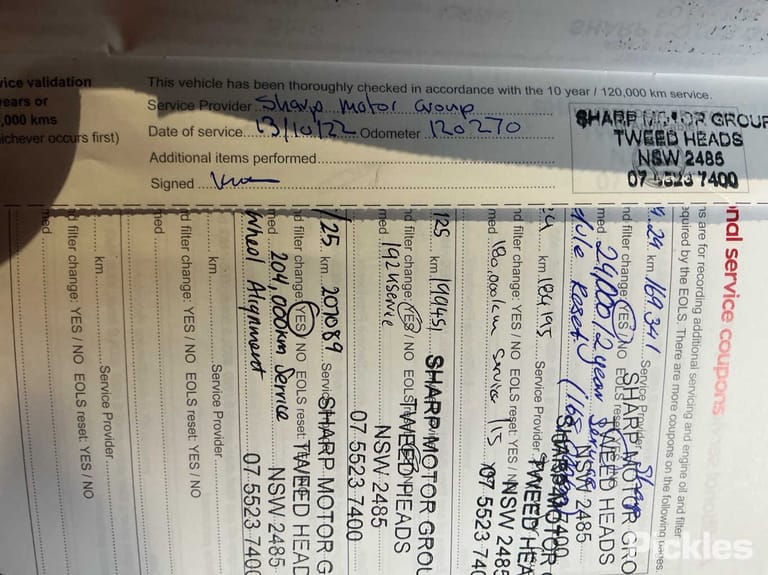 SHARP
vice validation
years or
,000 kms
hichever occurs first)
This vehicle has been thoroughly checked in accordance with the 10 year / 120,000 km service.
Service Provider Sharp Motor Group
Date of service 13/10/22 Odometer 120270
Additional items performed
Signed
SHARP MOTOR GROUP
TWEED HEADS
NSW 2485
07 5523 7400
nal service coupons
ns are for recording additional servicing and engine oil and filter
equired by the EOLS. There are more coupons on the following pages.
km 169,341 Service Provider Sharp
nd filter change: YES / NO EOLS reset:
med 24000/2 year Service
Reset (168
SHARP MOTOR GRO
TWEED HEADS
NSW 2485
7400
km 184195 Service Provider
nd filter change: YES / NO EOLS reset: YES / N
med 180,000km Service
SHARP MOTOR G
TWEED HEA
NSW 2485
07 5523 740
125 km 199451
nd filter change: YES / NO EOLS
med 192K Service
SHARP MOTOR GROU
TWEED HEADS
NSW 2485
07 5523 7400
/25 km 207089 Service
nd filter change: YES / NO EOLS reset:
med 204,000km Service
Wheel Alignment
SHARP MOTOR G
TWEED HEAD
NSW 2485
07 5523 7400
km Service Provider
nd filter change: YES / NO EOLS reset: YES / NO
med
km Service Provider
nd filter change: YES / NO EOLS reset: YES / NO
med
Pickles